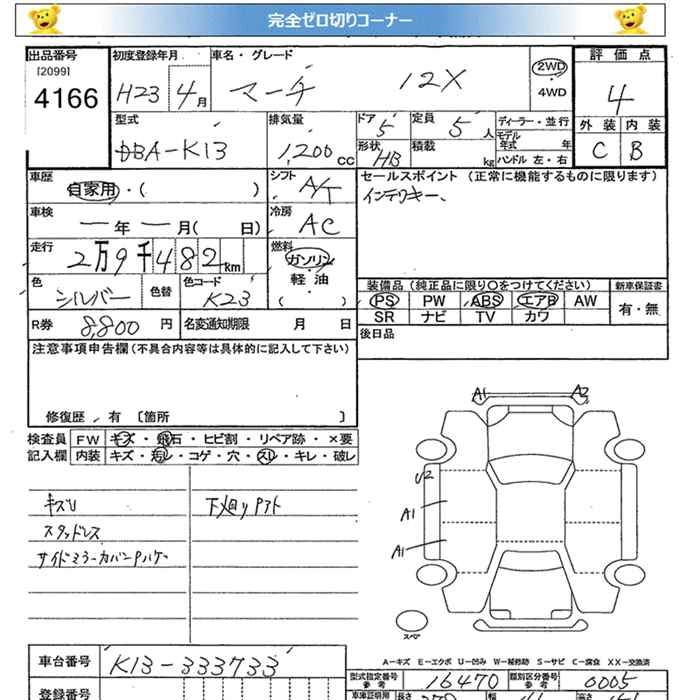 完全ゼロ切りコーナー
出品番号
[2099]
4166
初度登録年月
H23 4月
車名・グレード
マーチ 12X
2WD
4WD
評価点
4
外装 内装
C B
型式
DBA-K13
排気量
1,200cc
ドア
5
定員
5人
形状
HB
積載
kg
ディーラー・並行
モデル年式 年
ハンドル 左・右
車歴
自家用・( )
シフト
A/T
車検
年 月( 日)
冷房
AC
走行
2万9千482km
燃料
ガソリン
軽油
( )
色
シルバー
色替
色コード
K23
R券
8,800円
名変通知期限 月 日
セールスポイント (正常に機能するものに限ります)
インテリキー、
装備品 (純正品に限り○をつけてください)
PS PW ABS エアB AW
SR ナビ TV カワ
新車保証書
有・無
後日品
注意事項申告欄(不具合内容等は具体的に記入して下さい)
修復歴 有 〔箇所 〕
検査員
記入欄
FW キズ・飛石・ヒビ割・リペア跡・×要
内装 キズ・汚レ・コゲ・穴・スレ・キレ・破レ
キズU
スタッドレス
サイドミラーカバーPハゲ
下廻リサビ
A1
A2
U2
A1
A1
スペア
A-キズ E-エクボ U-凹み W-補修跡 S-サビ C-腐食 XX-交換済
車台番号
K13-333733
登録番号
型式指定番号
参考
16470
類別区分番号
参考
0005
車庫証明用
長さ
幅
高さ